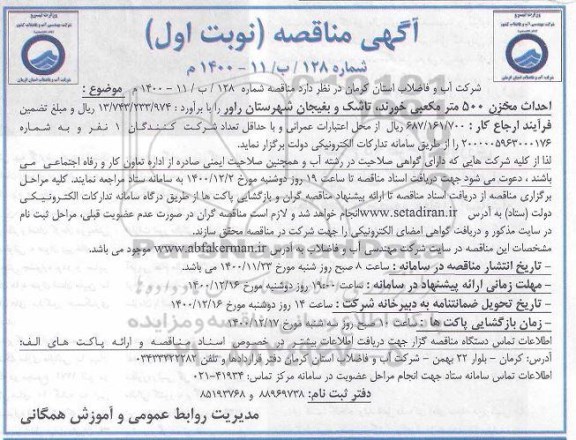 آگهی مناقصه (نوبت اول)
شماره ۱۲۸ / ب/ ۱۱ - ۱۴۰۰ م
شرکت آب و فاضلاب استان کرمان در نظر دارد مناقصه شماره ۱۲۸ / ب / ۱۱ - ۱۴۰۰ م موضوع :
احداث مخزن ۵۰۰ متر مکعبی خورند، تاشک و بغیجان شهرستان راور را با برآورد : ۱۳/۷۴۳/۲۳۳/۹۷۴ ریال و مبلغ تضمین
فرآیند ارجاع کار : ۶۸۷/۱۶۱/۷۰۰ ریال از محل اعتبارات عمرانی و با حداقل تعداد شرکت کنندگان ۱ نفر و به شماره
۲۰۰۰۰۰۵۹۶۳۰۰۰۱۷۶ را از طریق سامانه تدارکات الکترونیکی دولت برگزار نماید.
لذا از کلیه شرکت هایی که دارای گواهی صلاحیت در رشته آب و همچنین صلاحیت ایمنی صادره از اداره تعاون کار و رفاه اجتماعی می
باشند ، دعوت می شود جهت دریافت اسناد مناقصه تا ساعت ۱۹ روز دوشنبه مورخ ۱۴۰۰/۱۲/۲ به سامانه ستاد مراجعه نمایند. کلیه مراحل
برگزاری مناقصه از دریافت اسناد مناقصه تا ارائه پیشنهاد مناقصه گران و بازگشایی پاکت ها از طریق درگاه سامانه تدارکات الکترونیکی
دولت (ستاد) به آدرس www.setadiran.ir انجام خواهد شد و لازم است مناقصه گران در صورت عدم عضویت قبلی، مراحل ثبت نام
در سایت مذکور و دریافت گواهی امضای الکترونیکی را جهت شرکت در مناقصه محقق سازند.
مشخصات این مناقصه در سایت شرکت مهندسی آب و فاضلاب به آدرس www.abfakerman.ir موجود می باشد.
- تاریخ انتشار مناقصه در سامانه : ساعت ۸ صبح روز شنبه مورخ ۱۴۰۰/۱۱/۲۳ می باشد.
- مهلت زمانی ارائه پیشنهاد در سامانه : ساعت ۱۹:۰۰ روز دوشنبه مورخ ۱۴۰۰/۱۲/۱۶
- تاریخ تحویل ضمانتنامه به دبیرخانه شرکت : ساعت ۱۴ روز دوشنبه مورخ ۱۴۰۰/۱۲/۱۶
- زمان بازگشایی پاکت ها : ساعت ۱۰ صبح روز سه شنبه مورخ ۱۴۰۰/۱۲/۱۷
اطلاعات تماس دستگاه مناقصه گزار جهت دریافت اطلاعات بیشتر در خصوص اسناد مناقصه و ارائه پاکت های الف:
آدرس: کرمان – بلوار ۲۲ بهمن – شرکت آب و فاضلاب استان کرمان دفتر قراردادها و تلفن ۰۳۴۳۳۳۲۲۲۸۲
اطلاعات تماس سامانه ستاد جهت انجام مراحل عضویت در سامانه مرکز تماس: ۴۱۹۳۴-۰۲۱
دفتر ثبت نام: ۸۸۹۶۹۷۳۸ و ۸۵۱۹۳۷۶۸
مدیریت روابط عمومی و آموزش همگانی